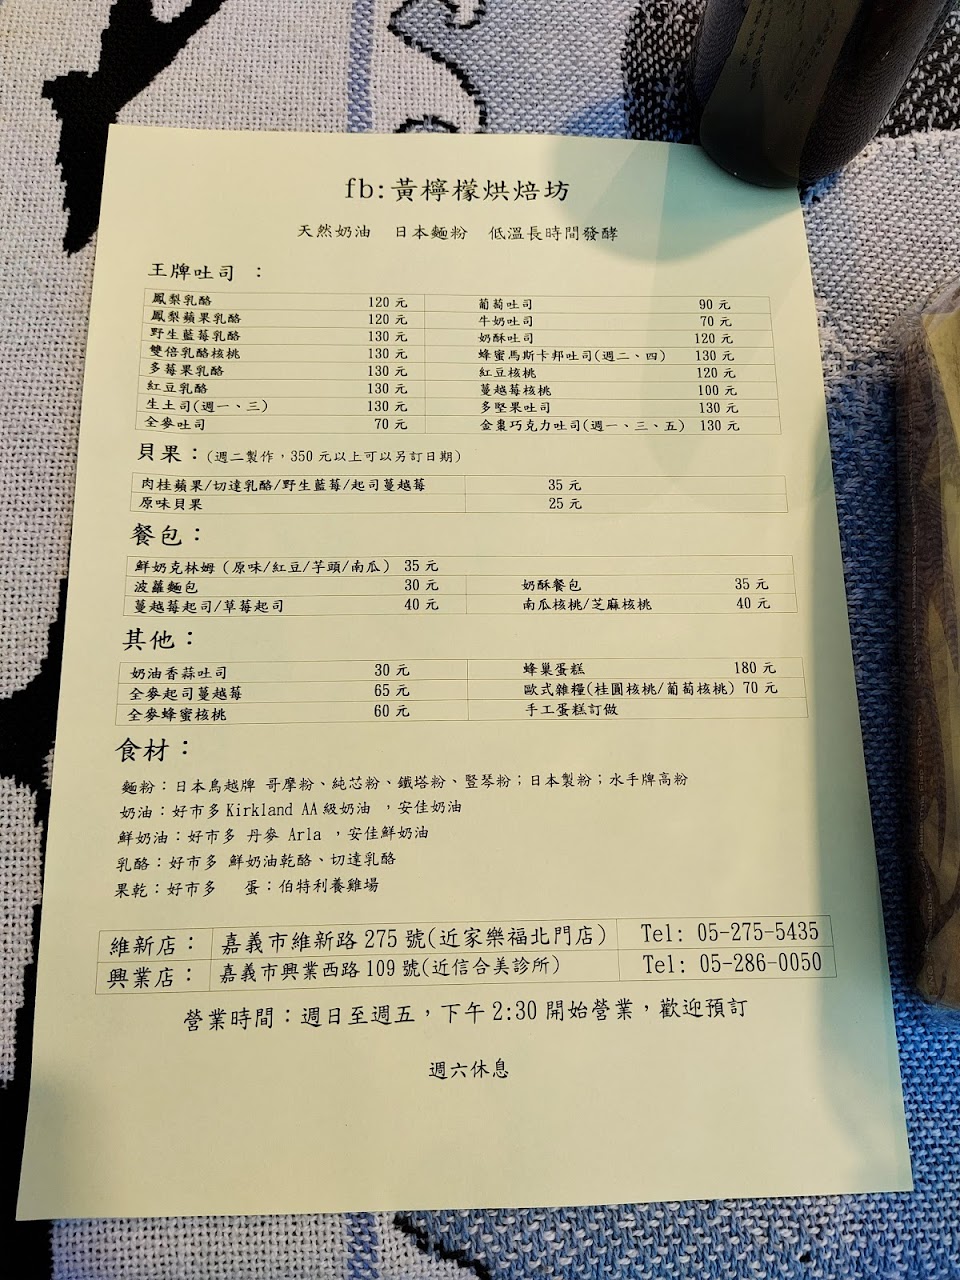 fb:黃檸檬烘焙坊
天然奶油 日本麵粉 低溫長時間發酵
王牌吐司 ：
鳳梨乳酪 120 元 葡萄吐司 90 元
鳳梨蘋果乳酪 120 元 牛奶吐司 70 元
野生藍莓乳酪 130 元 奶酥吐司 120 元
雙倍乳酪核桃 130 元 蜂蜜馬斯卡邦吐司(週二、四) 130 元
多莓果乳酪 130 元 紅豆核桃 120 元
紅豆乳酪 130 元 蔓越莓核桃 100 元
生土司(週一、三) 130 元 多堅果吐司 130 元
全麥吐司 70 元 金棗巧克力吐司(週一、三、五) 130 元
貝果：(週二製作，350 元以上可以另訂日期)
肉桂蘋果/切達乳酪/野生藍莓/起司蔓越莓 35 元
原味貝果 25 元
餐包：
鮮奶克林姆（原味/紅豆/芋頭/南瓜） 35 元
波蘿麵包 30 元 奶酥餐包 35 元
蔓越莓起司/草莓起司 40 元 南瓜核桃/芝麻核桃 40 元
其他：
奶油香蒜吐司 30 元 蜂巢蛋糕 180 元
全麥起司蔓越莓 65 元 歐式雜糧(桂圓核桃/葡萄核桃) 70 元
全麥蜂蜜核桃 60 元 手工蛋糕訂做
食材：
麵粉：日本鳥越牌 哥摩粉、純芯粉、鐵塔粉、豎琴粉；日本製粉；水手牌高粉
奶油：好市多 Kirkland AA 級奶油 ，安佳奶油
鮮奶油：好市多 丹麥 Arla ，安佳鮮奶油
乳酪：好市多 鮮奶油乾酪、切達乳酪
果乾：好市多 蛋：伯特利養雞場
維新店： 嘉義市維新路 275 號(近家樂福北門店) Tel: 05-275-5435
興業店： 嘉義市興業西路 109 號(近信合美診所) Tel: 05-286-0050
營業時間：週日至週五，下午 2:30 開始營業，歡迎預訂
週六休息